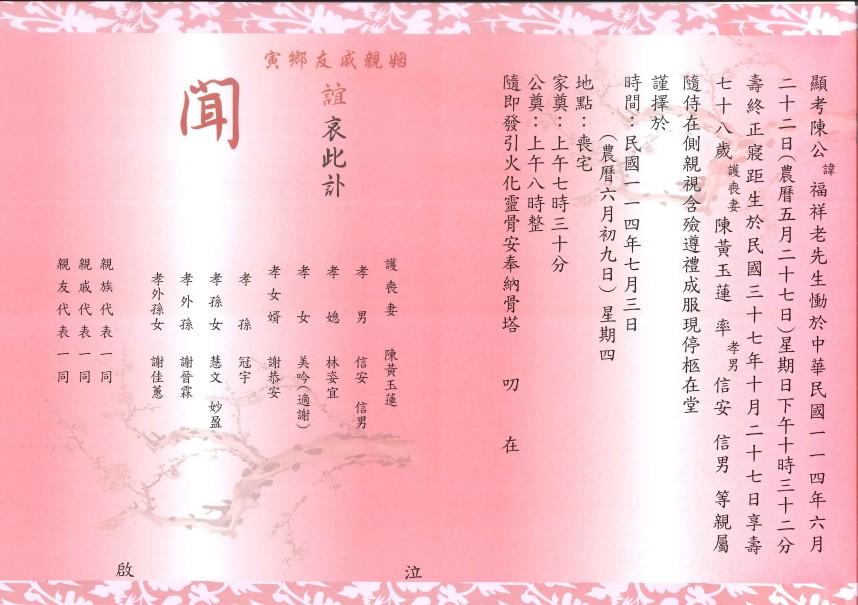 顯考陳公諱福祥老先生慟於中華民國一一四年六月
二十二日(農曆五月二十七日)星期日下午十時三十二分
壽終正寢距生於民國三十七年十月二十七日享壽
七十八歲護喪妻陳黃玉蓮 率孝男 信安 信男 等親屬
隨侍在側親視含殮遵禮成服現停柩在堂
謹擇於
時間：民國一一四年七月三日
(農曆六月初九日) 星期四
地點：喪宅
家奠：上午七時三十分
公奠：上午八時整
隨即發引火化靈骨安奉納骨塔 叨 在
姻親戚友鄉寅
誼哀此訃
聞
護喪妻 陳黃玉蓮
孝男 信安 信男
孝媳 林姿宜
孝女 美吟(適謝)
孝女婿 謝恭安
孝孫 冠宇
孝孫女 慧文 妙盈
孝外孫 謝晉霖
孝外孫女 謝佳蕙
親族代表一同
親戚代表一同
親友代表一同
泣
啟